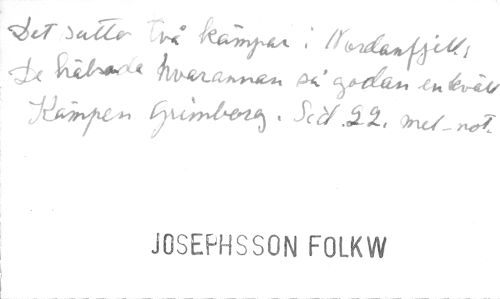 Det sutto två kämpar i Nordanfjell,
De hälsade hvarannan så godan en kväll
Kämpen Grimborg. Sid. 22. mel-not.
JOSEPHSSON FOLKW